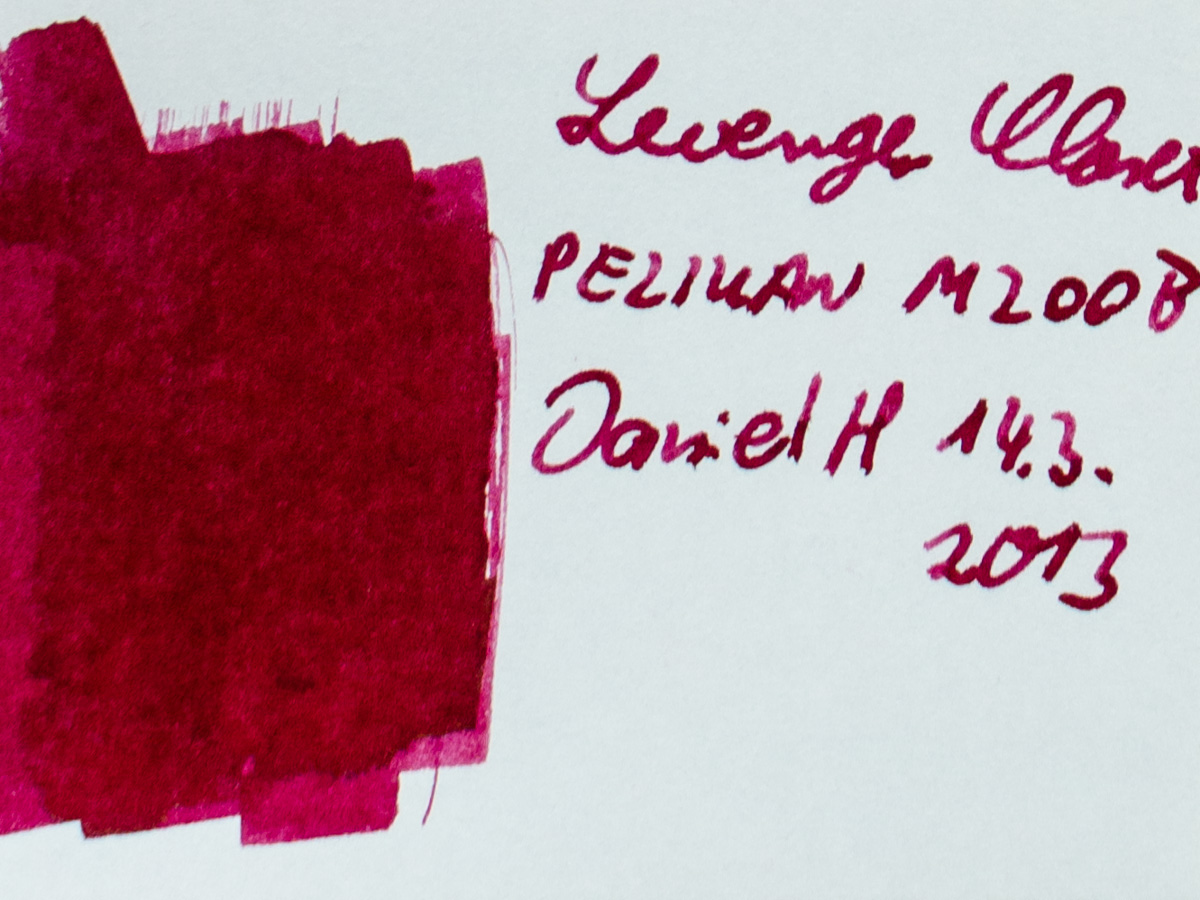 Levenger
PELIKAN M200 B
Daniel H 14.3.
2013